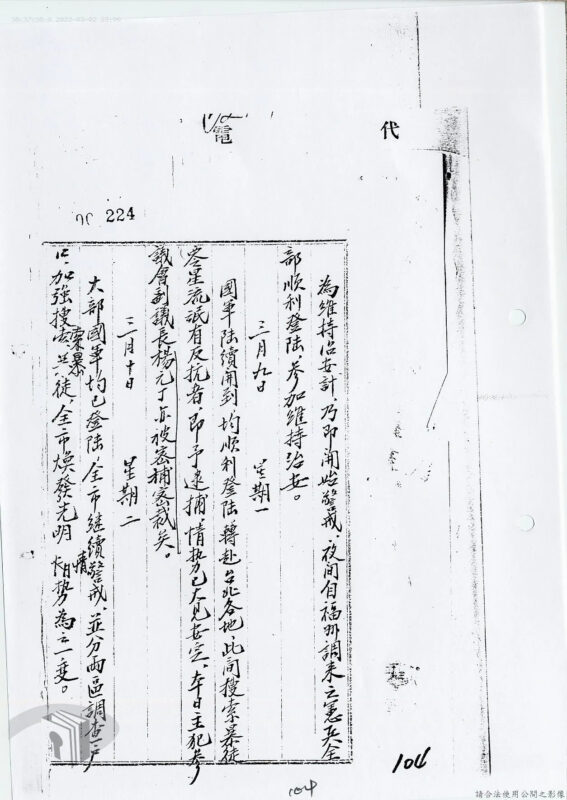 代電
224
為維持治安計,乃即開始警戒,夜间自福州調来之憲兵全
部順利登陸,参加維持治安。
三月九日 星期一
國軍陸續開到均順利登陸轉赴台北各地,此间搜索暴徒
零星流氓有反抗者,即予逮捕,情势已大見安定、本日主犯参
議會副議長楊元丁亦被密捕密裁矣。
三月十日 星期二
大部國軍均已登陸,全市继續警戒、並分兩區調查户
口,加強搜索奸暴徒,全市焕發光明 情势為之一变。
情
104
104
請合法使用公開之影像